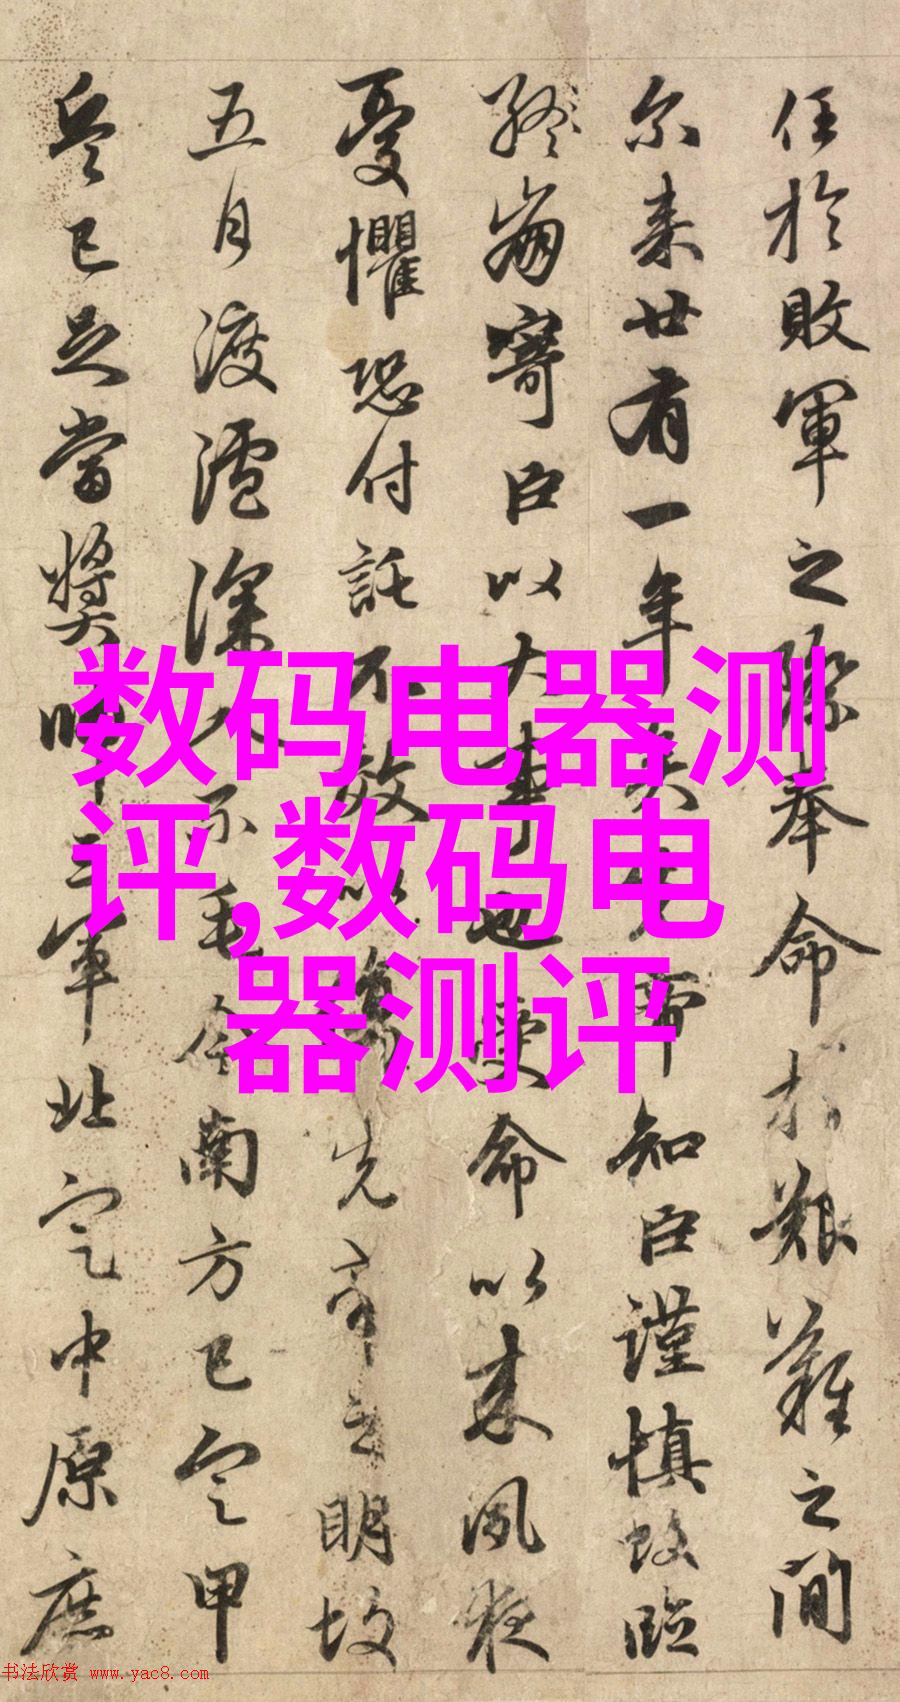 任於敗軍之際奉命於艱難之間
尔来廿有一年矣先帝知臣謹慎故臨
終崩寄臣以大事也受命以来夙夜
憂懼恐付託不效以傷先帝之明故
五月渡瀘深入不毛今南方已定甲
兵已足當獎帥三軍北定中原庶
数码电器测
评,数码电
器测评
书法欣赏 www.yac8.com